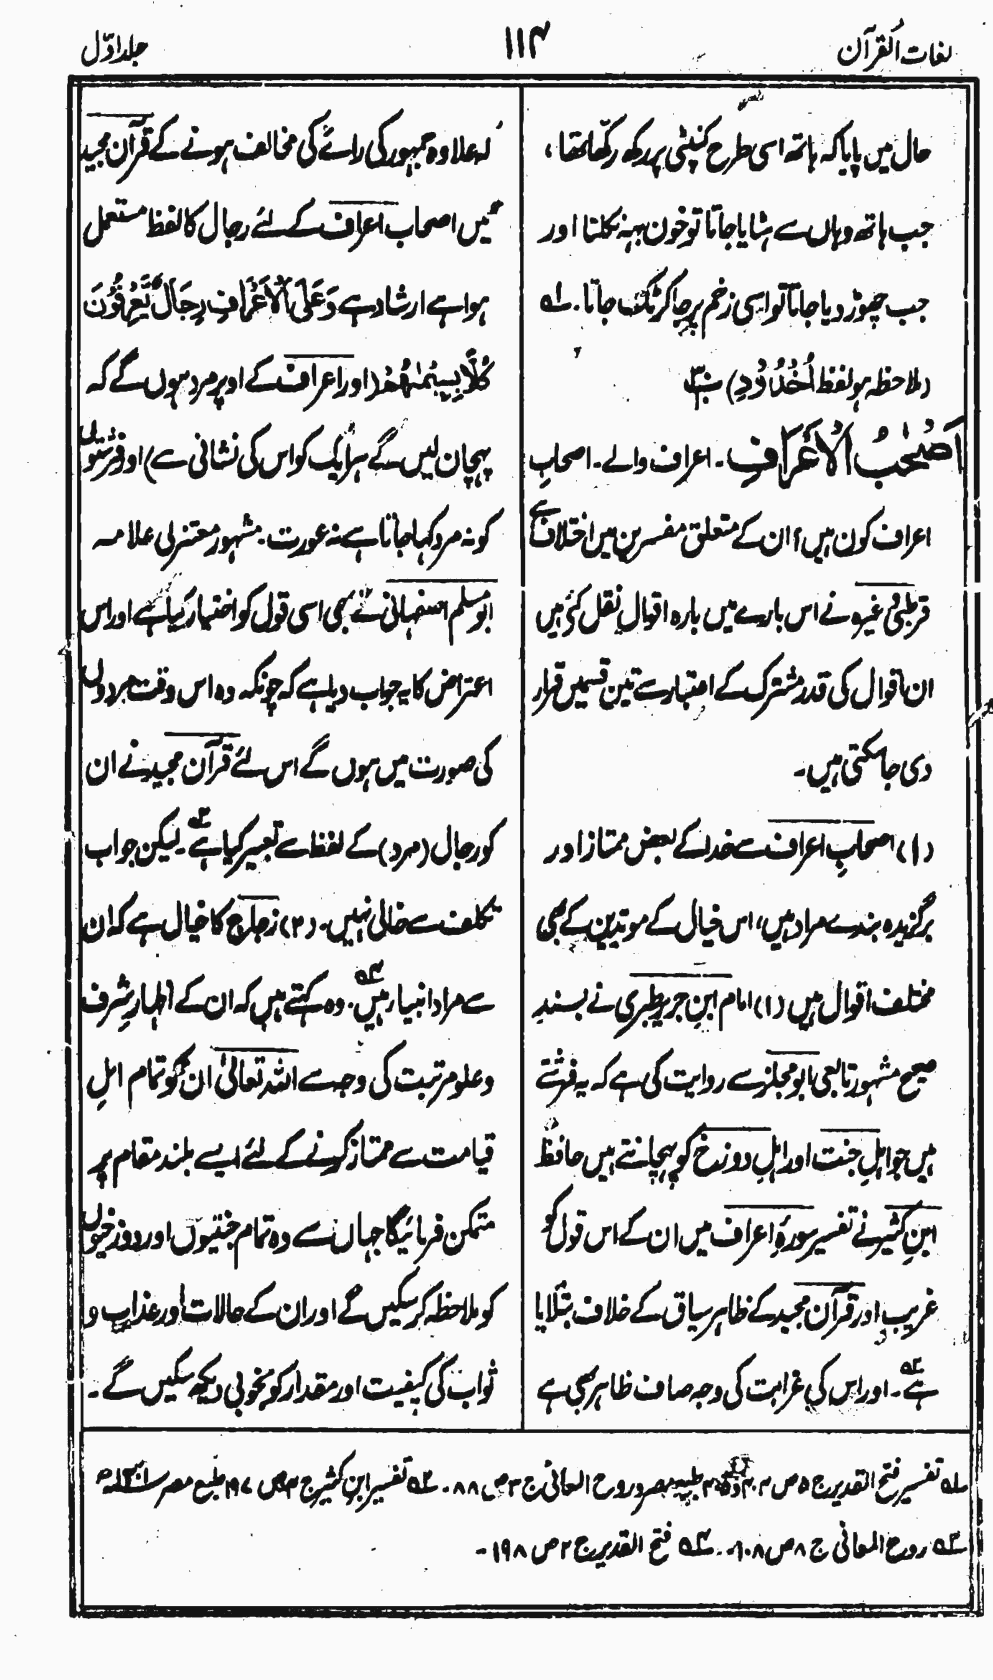 لغات القرآن
۱۱۴
جلد اوّل
حال میں پایا کہ ہاتھ اسی طرح کنپٹی پر رکھ رکھا تھا،
جب ہاتھ وہاں سے ہٹایا جاتا تو خون بہنہ نکلتا اور
جب چھوڑ دیا جاتا تو اسی زخم پر جا کر ٹک جاتا۔ لہ
(ملاحظہ ہو لفظ اُخْدُوْدِ)
اَصْحٰبُ الْاَعْرَافِ۔ اعراف والے۔ اصحابِ
اعراف کون ہیں؟ ان کے متعلق مفسرین میں اختلاف ہے
قرطبیؒ وغیرہ نے اس بارے میں بارہ اقوال نقل کئے ہیں
ان اقوال کی قدر مشترک کے اعتبار سے تین قسمیں قرار
دی جا سکتی ہیں۔
(۱) اصحابِ اعراف سے خدا کے بعض ممتاز اور
برگزیدہ بندے مراد ہیں، اس خیال کے موئدین کے بھی
مختلف اقوال ہیں (۱) امام ابنِ جریر طبری نے بسندِ
صحیح مشہور تابعی ابو مجلز سے روایت کی ہے کہ یہ فرشتے
ہیں جو اہلِ جنت اور اہلِ دوزخ کو پہچانتے ہیں حافظ
ابنِ کثیر نے تفسیر سورۂ اعراف میں ان کے اس قول کو
غریب اور قرآن مجید کے ظاہر سیاق کے خلاف بتلایا
ہے۔ اور اس کی غرابت کی وجہ صاف ظاہر بھی ہے
کہ علاوہ جمہور کی رائے کی مخالف ہونے کے قرآن مجید
میں اصحاب اعراف کے لئے رجال کا لفظ مستعمل
ہوا ہے ارشاد ہے وَعَلَی الْاَعْرَافِ رِجَالٌ یَّعْرِفُوْنَ
کُلًّا بِسِیْمٰھُمْ (اور اعراف کے اوپر مرد ہوں گے کہ
پہچان لیں گے ہر ایک کو اس کی نشانی سے) اور فرشتوں
کو نہ مرد کہا جاتا ہے نہ عورت۔ مشہور معتزلی علامہ
ابو مسلم اصفہانی نے بھی اسی قول کو اختیار کیا ہے اور اس
اعتراض کا یہ جواب دیا ہے کہ چونکہ وہ اس وقت مردوں
کی صورت میں ہوں گے اس لئے قرآن مجید نے ان
کو رجال (مرد) کے لفظ سے تعبیر کیا ہے۔ لیکن جواب
تکلف سے خالی نہیں۔ (۲) زجاج کا خیال ہے کہ ان
سے مراد انبیاء ہیں۔ وہ کہتے ہیں کہ ان کے اظہارِ شرف
و علو مرتبت کی وجہ سے اللہ تعالیٰ ان کو تمام اہلِ
قیامت سے ممتاز کرنے کے لئے ایسے بلند مقام پر
متمکن فرمائیگا جہاں سے وہ تمام جنتیوں اور دوزخیوں
کو ملاحظہ کر سکیں گے اور ان کے حالات اور عذاب و
ثواب کی کیفیت اور مقدار کو بخوبی دیکھ سکیں گے۔
لہ تفسیر فتح القدیر ج ۵ ص طبع مصر و روح المعانی ج ۳ ص ۸۸۔ تفسیر ابن کثیر ج ص ۱۹۷ طبع مصر
روح المعانی ج ۸ ص ۱۰۸۔ فتح القدیر ج ۲ ص ۱۹۸۔